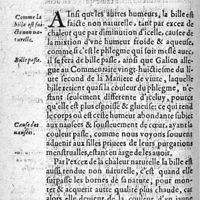 Comme la
bile est fai
non na-
turelle.
Bile paste.
Causes des
nausées.
AInsi que les autres humeurs, la bile est
faicte non naturelle, tant par excez de
chaleur que par diminution d'icelle, causée de
la mixtion d'vne humeur froide & aqueuse,
comme si c'est le phlegme qui soit meslé auec
il se fera de bile passe, ainsi que Galien allegue
au Commentaire vingt-huictiesme du liure
second de la Maniere de viure, laquelle
bile retient quasi la couleur du phlegme, n'e-
stant seulement differente d'iceluy, pource
qu'elle est plus espoisse & glueuse; ce qui rend
le corps où est ceste humeur abondante subiet
aux nausées & sousleuement de cœur, ayant la
couleur passe, comme nous voyons souuent
aduenir aux filles priuées de leurs purgations
menstruales, estant en âge de les auoir.
Par l'excez de la chaleur naturelle la bile est
aussi rendue non naturelle, c'est quand elle
surpasse les bornes de sa nature, pour estre
& acquerir autre qualité plus chaude, car
alors elle deuient de la couleur d'vn iaune